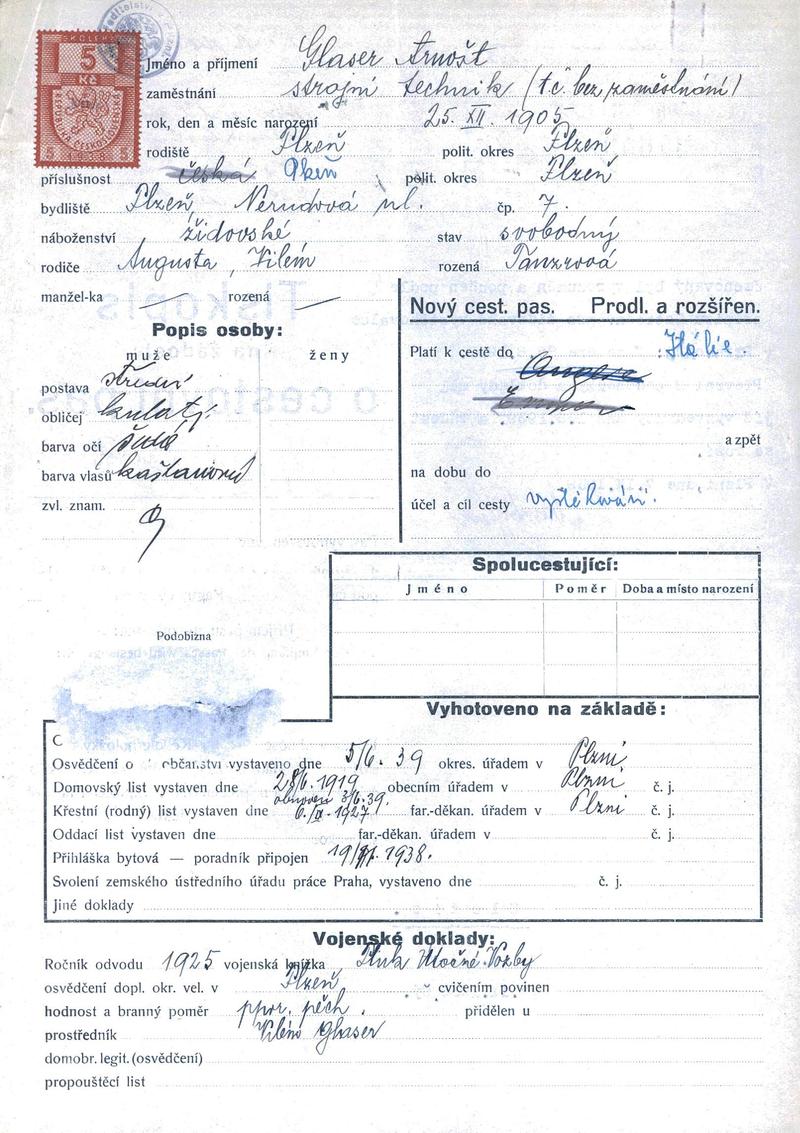 5
Kč
Jméno a příjmení Glaser Arnošt
zaměstnání strojní technik (t.č. bez zaměstnání)
rok, den a měsíc narození 25. XII. 1905
rodiště Plzeň polit. okres Plzeň
příslušnost česká Plzeň polit. okres Plzeň
bydliště Plzeň, Nerudova ul. čp. 7.
náboženství židovské stav svobodný
rodiče Augusta, Vilém rozená Tanzrová
manžel-ka rozená
Nový cest. pas. Prodl. a rozšířen.
Popis osoby:
muže ženy
Platí k cestě do Itálie.
postava střední
obličej kulatý
barva očí šedé
barva vlasů kaštanové
zvl. znam.
a zpět
na dobu do
účel a cíl cesty vystěhování.
Spolucestující:
Jméno Poměr Doba a místo narození
Podobizna
Vyhotoveno na základě:
Osvědčení o občanství vystaveno dne 5/6. 39 okres. úřadem v Plzni
Domovský list vystaven dne 28/6. 1919 obecním úřadem v Plzni č. j.
obnoven 3/6. 39.
Křestní (rodný) list vystaven dne 6./IX. 1927 far.-děkan. úřadem v Plzni č. j.
Oddací list vystaven dne far.-děkan. úřadem v č. j.
Přihláška bytová — poradník připojen 1938.
Svolení zemského ústředního úřadu práce Praha, vystaveno dne č. j.
Jiné doklady
Vojenské doklady:
Ročník odvodu 1925 vojenská knížka Pluk Útočné Vozby
osvědčení dopl. okr. vel. v Plzeň cvičením povinen
hodnost a branný poměr ppor. pěch. přidělen u
prostředník Vilém Glaser
domobr. legit. (osvědčení)
propouštěcí list